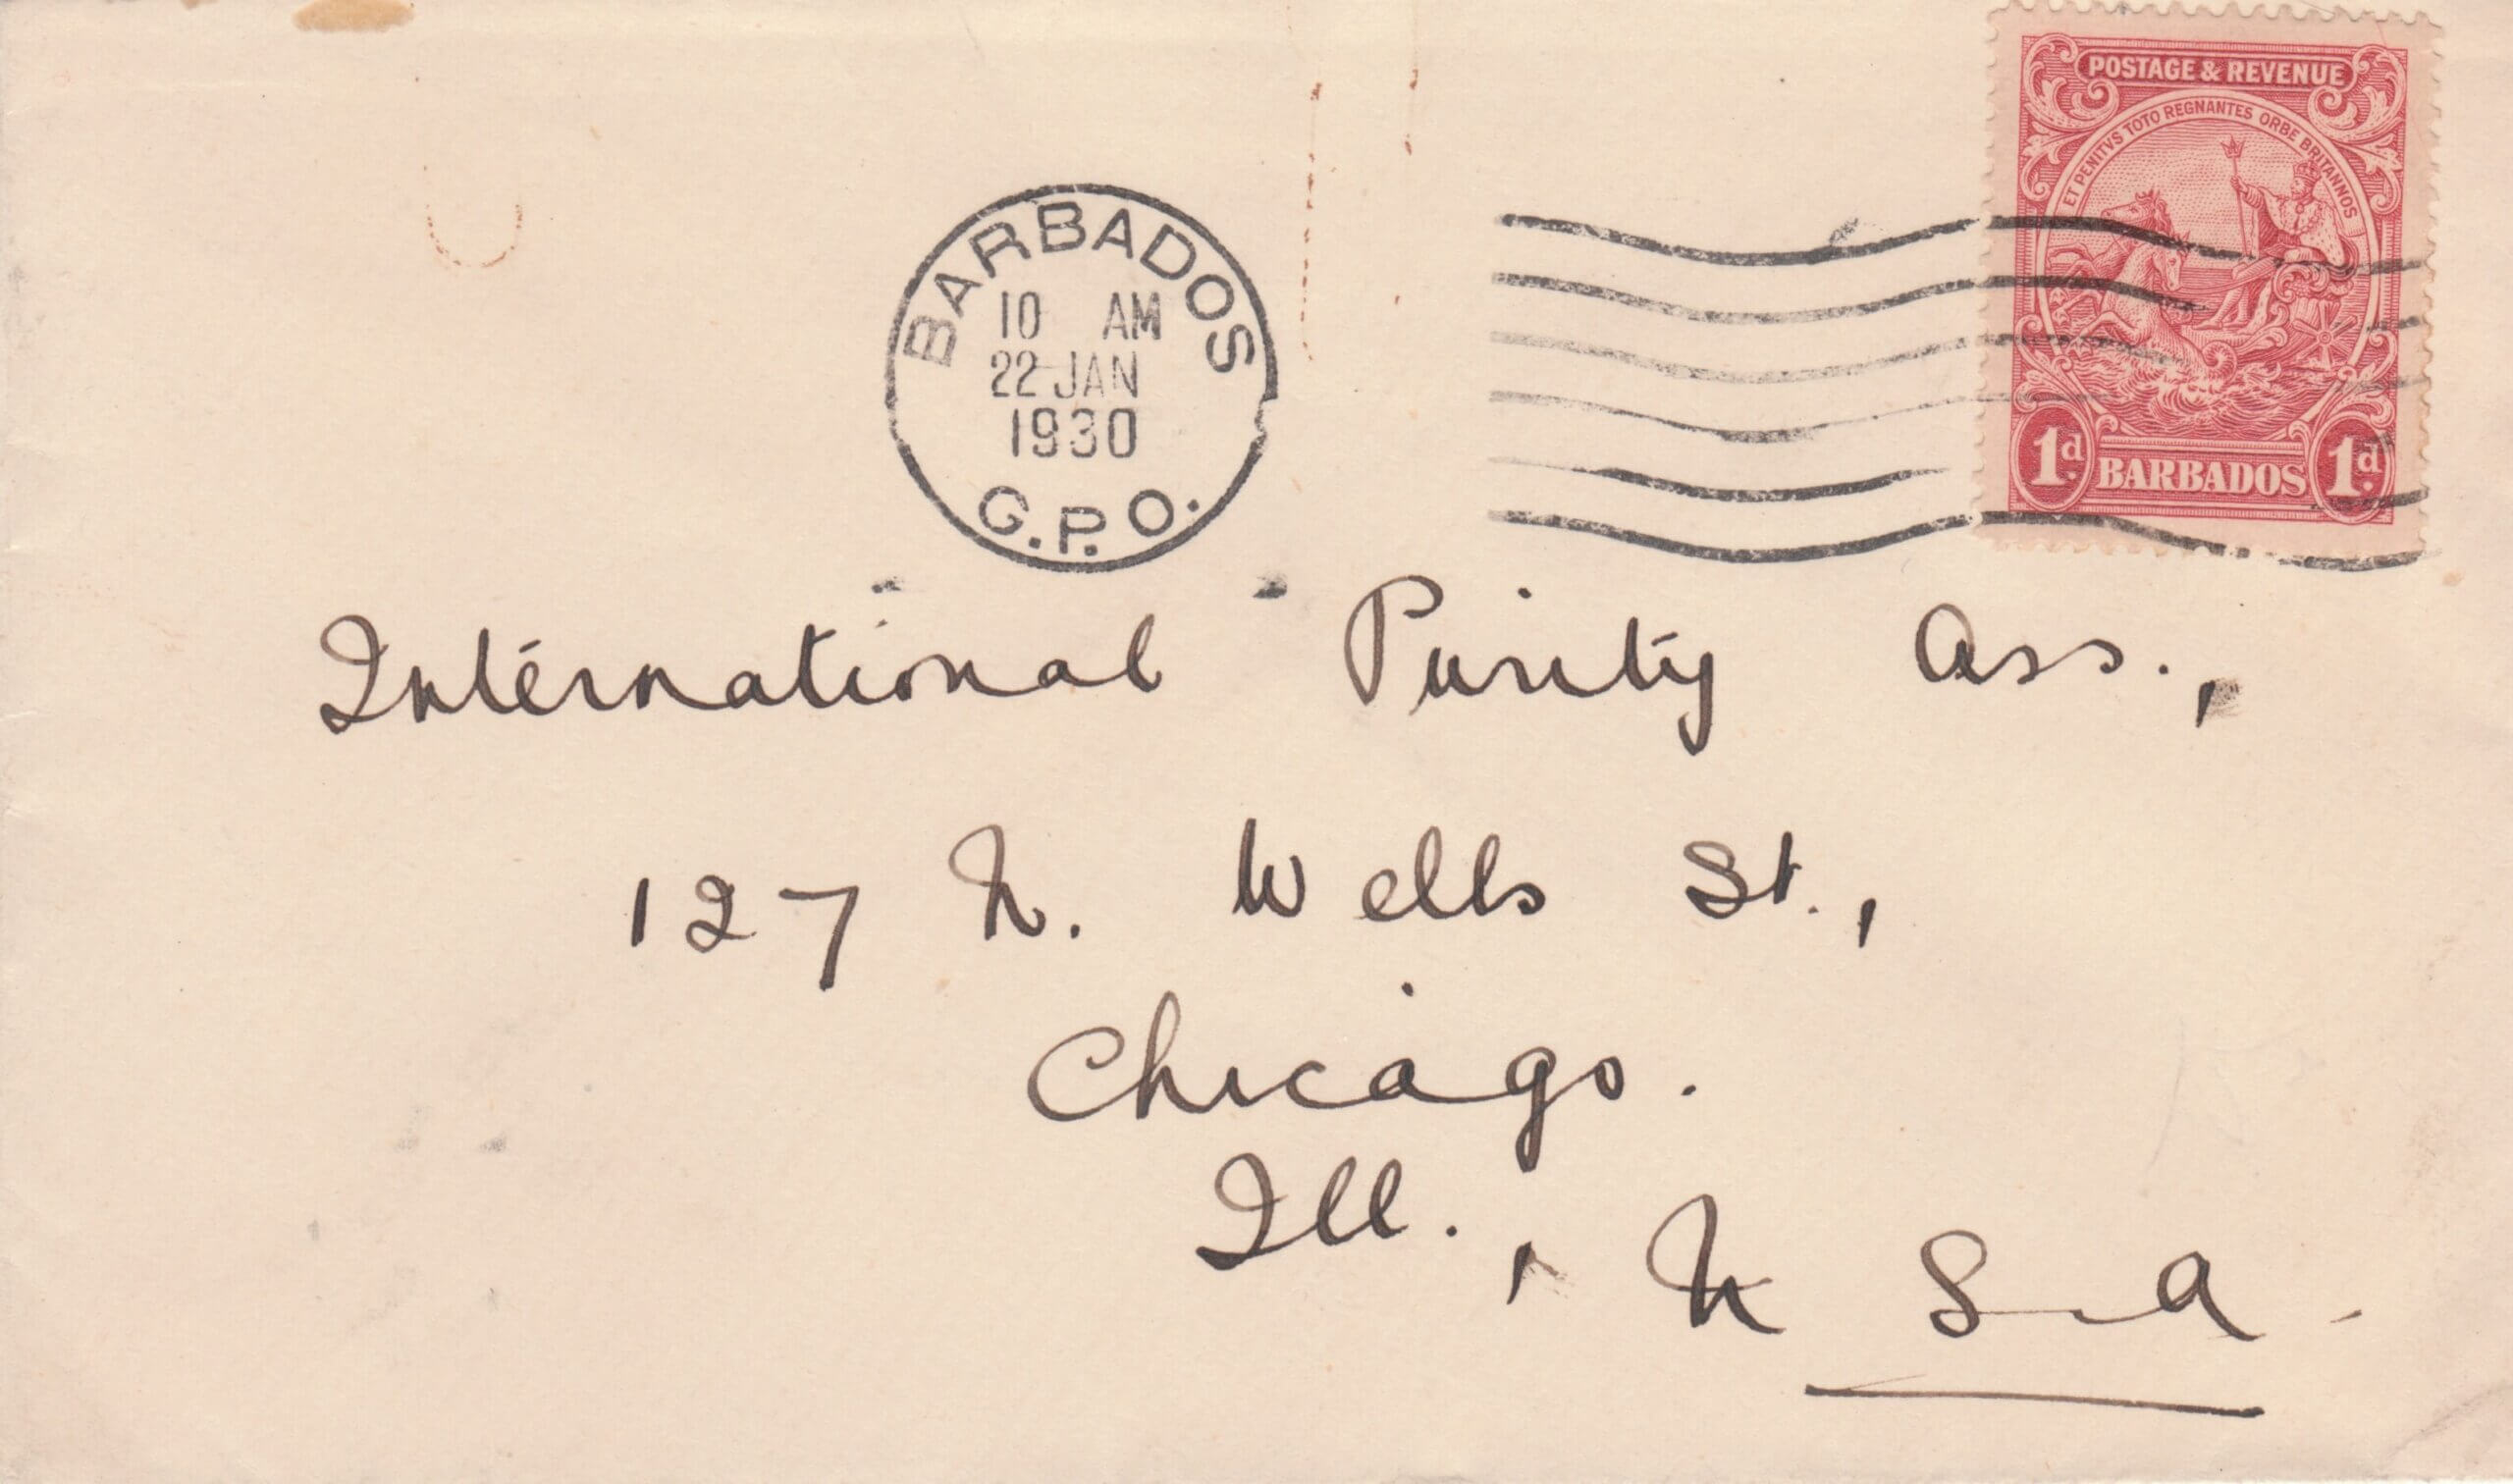 POSTAGE & REVENUE
ET PENITVS TOTO REGNANTES ORBE BRITANNOS
1d. BARBADOS 1d.
BARBADOS
10 AM
22 JAN
1930
G.P.O.
International Purity Ass.,
127 N. Wells St.,
Chicago.
Ill., U S A.